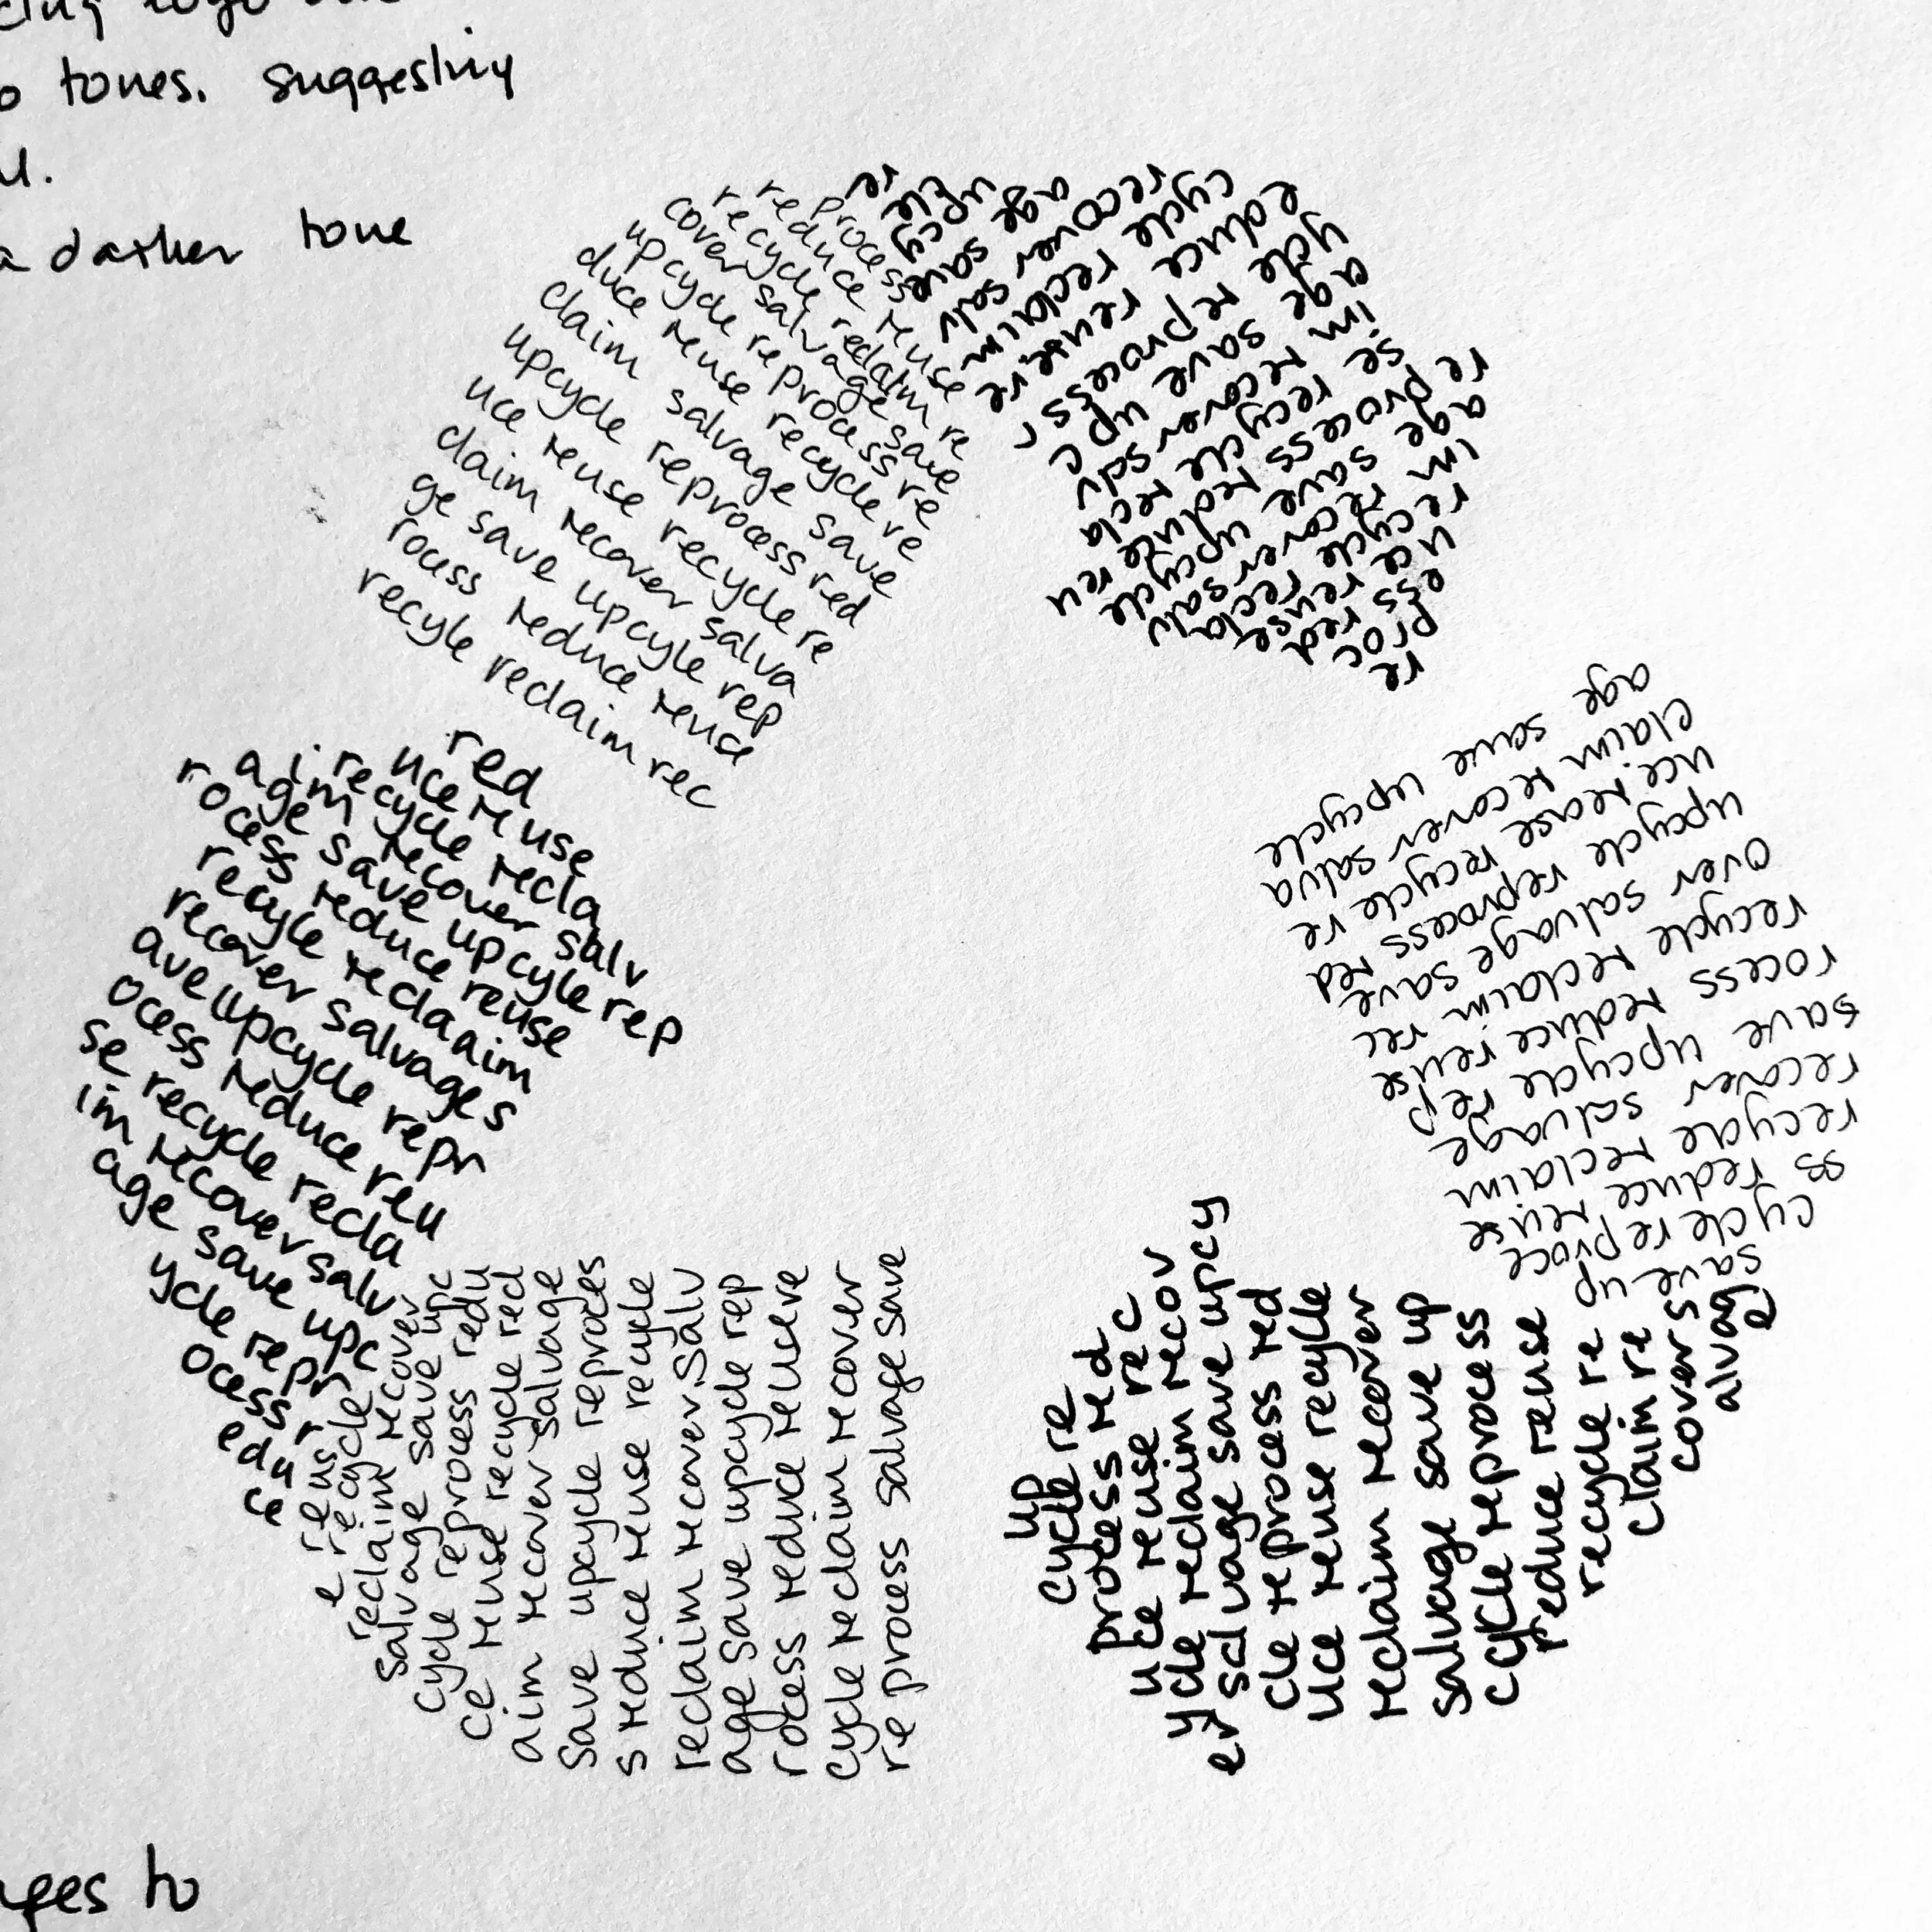 tones. suggesting
a darker tone
process
reduce reuse
recycle reclaim re
cover salvage save
upcycle reprocess re
duce reuse recycle re
claim salvage save
upcycle reprocess red
uce reuse recycle re
claim recover salva
ge save upcyle rep
rocess reduce reuse
recyle reclaim rec
re
age save
recover salv
cycle reclaim
educe reuse re
ycle reprocess r
age save upc
im recover salv
se recycle recla
re
process reduce reu
age save upcycle
im recover salv
recycle recla
uce reuse
ess red
proc
re
age save upcycle
claim recover salva
uce reuse recycle re
upcycle reprocess red
over salvage save
recycle reclaim rec
rocess reduce reuse
save upcycle rep
recover salvage
recycle reclaim
ss reduce reuse
cycle reproce
save up
up
cycle re
process red
uce reuse rec
ycle reclaim recov
er salvage save upcy
cle reprocess red
uce reuse recycle
reclaim recover
salvage save up
cycle reprocess
reduce reuse
recycle re
claim re
covers
alvag
e
red
uce reuse
recycle recla
im recover salv
age save upcyle rep
rocess reduce reuse
recyle reclaaim
recover salvages
ave upcycle repr
ocess reduce reu
se recycle recla
im recover salv
age save upc
ycle repr
ocess r
edu
ce
reus
e recycle
reclaim recover
salvage save upc
cycle reprocess redu
ce reuse recycle red
aim recover salvage
save upcycle reproces
s reduce reuse recycle
reclaim recover.Salv
age save upcycle rep
rocess reduce reuere
cycle reclaim recover
re process salvage save
to